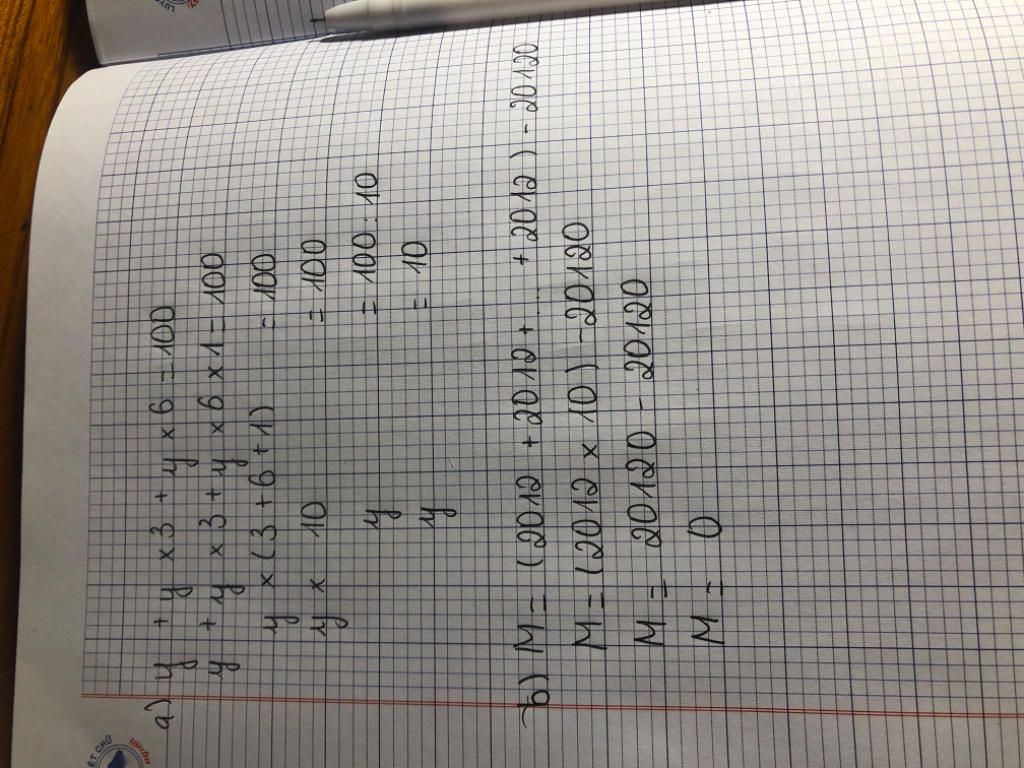 a) y + y × 3 + y × 6 = 100
y + y × 3 + y × 6 × 1 = 100
y × (3 + 6 + 1) = 100
y × 10 = 100
y = 100 : 10
y = 10
b) M = (2012 + 2012 + ... + 2012) - 20120
M = (2012 × 10) - 20120
M = 20120 - 20120
M = 0